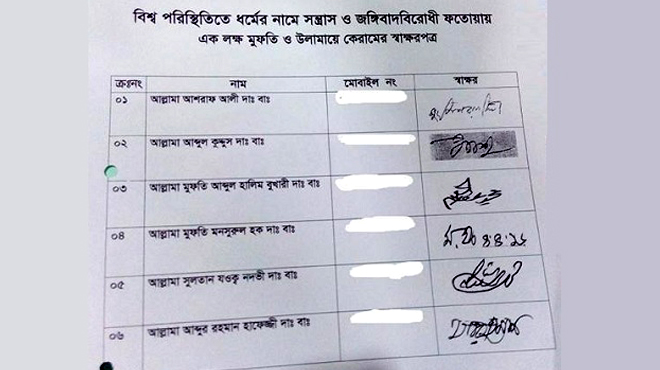 বিশ্ব পরিস্থিতিতে ধর্মের নামে সন্ত্রাস ও জঙ্গিবাদবিরোধী ফতোয়ায়
এক লক্ষ মুফতি ও উলামায়ে কেরামের স্বাক্ষরপত্র
ক্রঃনং নাম মোবাইল নং স্বাক্ষর
০১ আল্লামা আশরাফ আলী দাঃ বাঃ
০২ আল্লামা আব্দুল কুদ্দুস দাঃ বাঃ
০৩ আল্লামা মুফতি আব্দুল হালিম বুখারী দাঃ বাঃ
০৪ আল্লামা মুফতি মনসুরুল হক দাঃ বাঃ
০৫ আল্লামা সুলতান যওক্ব নদভী দাঃ বাঃ
০৬ আল্লামা আব্দুর রহমান হাফেজ্জী দাঃ বাঃ